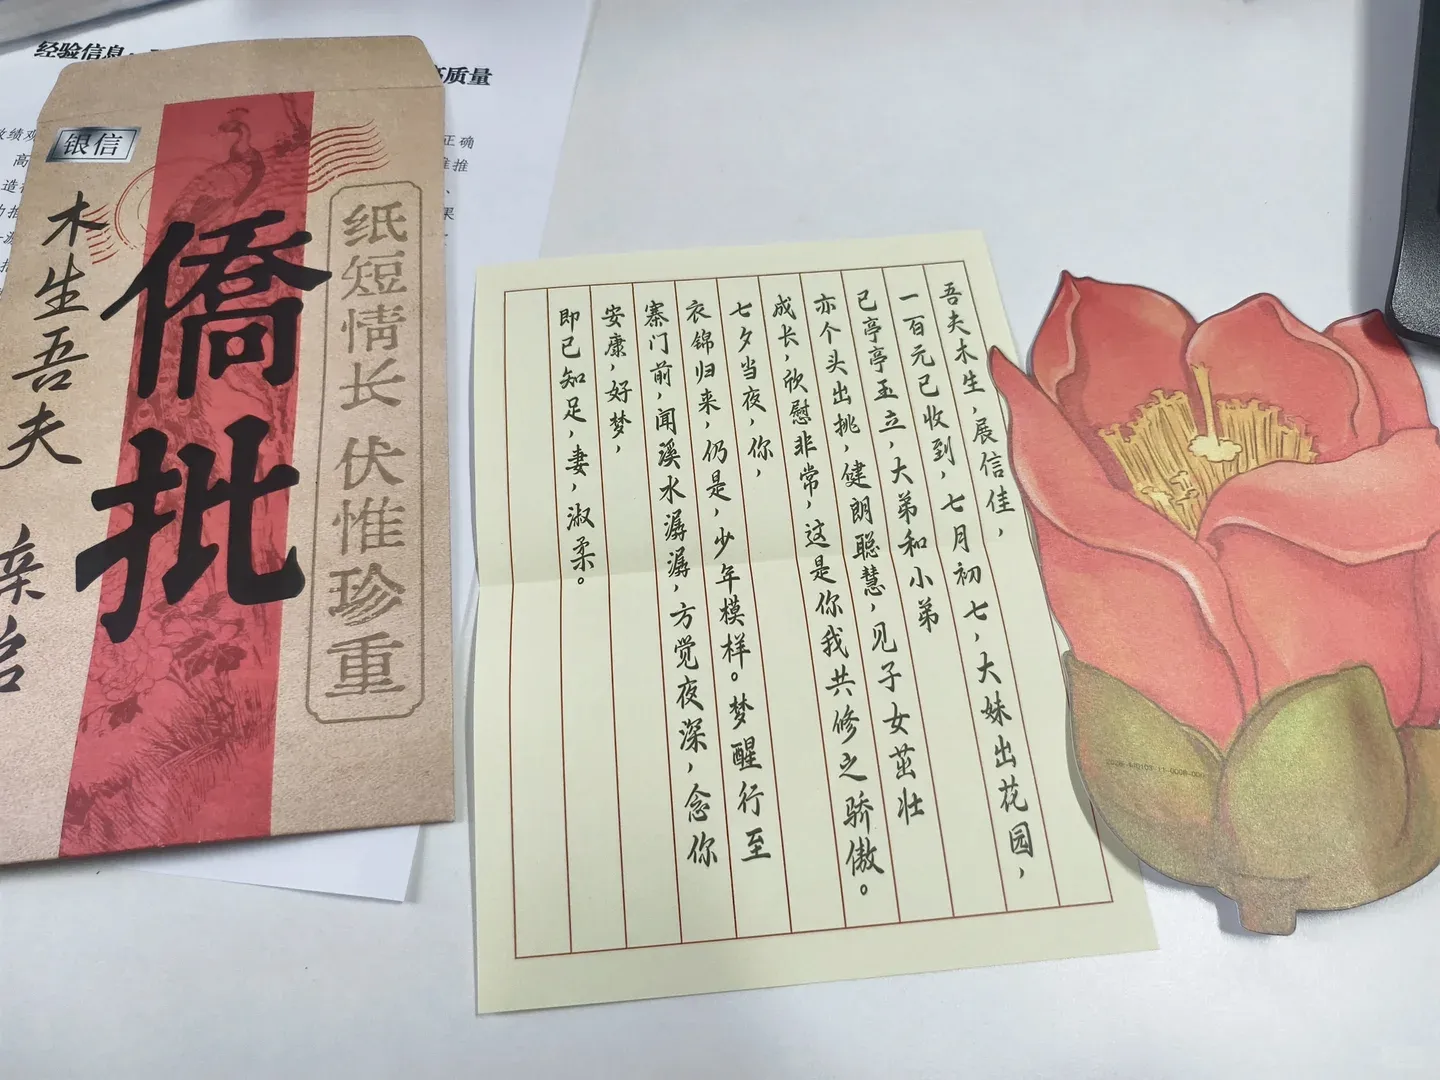 经验信息:
质量
正确
推
果
银信
木生吾夫
亲启
僑批
纸短情长 伏惟珍重
吾夫木生,展信佳,
一百元已收到,七月初七,大妹出花园,
已亭亭玉立,大弟和小弟
亦个头出挑,健朗聪慧,见子女茁壮
成长,欣慰非常,这是你我共修之骄傲。
七夕当夜,你,
衣锦归来,仍是,少年模样。梦醒行至
寨门前,闻溪水潺潺,方觉夜深,念你
安康,好梦,
即已知足,妻,淑柔。